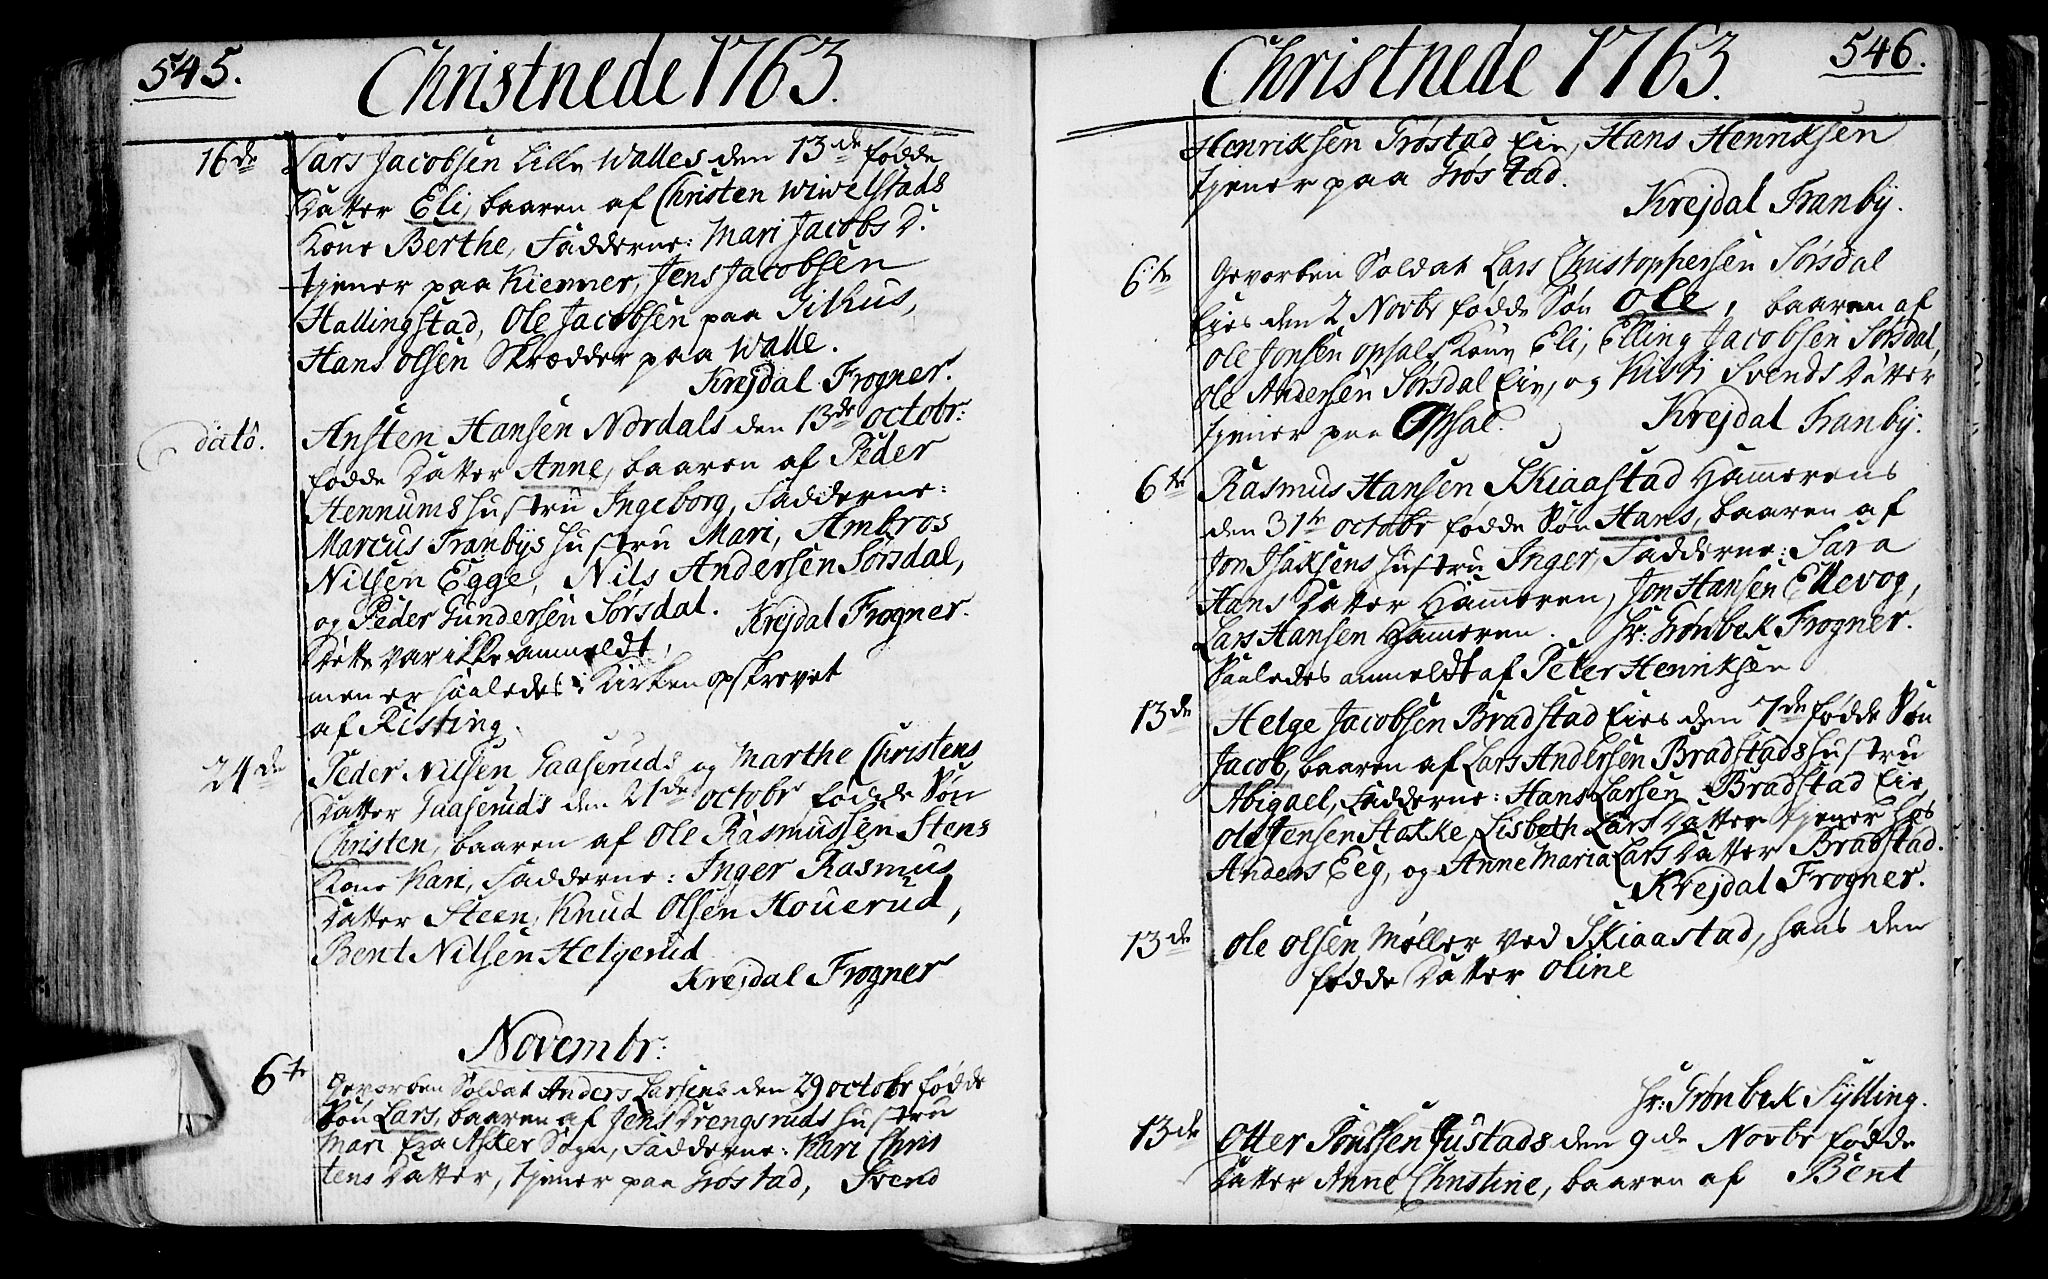 545.
Christnede 1763.
16de Lars Jacobsen Lille Walles den 13de fødde
Datter Eli, baaren af Christen Wiwelstads
Kone Berthe, Fadderne: Mari Jacobs D:
tjener paa Kiemmer, Jens Jacobsen
Hallingstad, Ole Jacobsen paa Gihus,
Hans Olsen Skrædder paa Walle.
Krejdal Frogner.
dato. Ansten Hansen Nordals den 13de Octobr:
fødde Datter Anne, baaren af Peder
Hennums Hustru Ingeborg, Fadderne:
Marcus Tranbys Hustru Mari, Ambros
Nilsen Egge, Nils Andersen Sørsdal,
og Peder Gundersen Sørsdal. Krejdal Frogner.
Dette var ikke anmeldt,
men er saaledes i Kirken opskrevet
af Risting.
24de Peder Nilsen Gaaseruds og Marthe Christens
Datter Gaaseruds den 21de Octobr fødde Søn
Christen, baaren af Ole Rasmussen Stens
Kone Kari, Fadderne: Inger Rasmus
Datter Steen, Knud Olsen Houerud,
Bent Nilsen Helgerud
Krejdal Frogner
Novembr:
6te Gevorben Soldat Anders Larsens den 29 Octobr fødde
Søn Lars, baaren af Jens Drengsruds Hustru
Mari fra Asker Sogn, Fadderne: Kari Chris
tens Datter, tjener paa Grøstad, Svend
546.
Christnede 1763.
Henriksen Grøstad Eie, Hans Henriksen
tjener paa Grøstad.
Krejdal Tranby.
6te Gevorben Soldat Lars Christophersen Sørsdal
Eies den 2 Novbr fødde Søn Ole, baaren af
Ole Jonsen Opsals Kone Eli, Elling Jacobsen Sørsdal,
Ole Andersen Sørsdal Eie, og Kisti Svends Datter
tjener paa Opsal. Krejdal Tranby.
6te Rasmus Hansen Skiaastad Hammerens
den 31te Octobr fødde Søn Hans, baaren af
Jon Isaksens Hustru Inger, Fadderne: Sara
Hans Datter Hammeren, Jon Hansen Ellevog,
Lars Hansen Hammeren. Hr: Grønbek Frogner.
Saaledes anmeldt af Peter Henriksen
13de Helge Jacobsen Bradstad Eies den 7de fødde Søn
Jacob, baaren af Lars Andersen Bradstads Hustru
Abigael, Fadderne: Hans Larsen Bradstad Eie,
Ole Jensen Stakke, Lisbeth Lars Datter tjener hos
Anders Eeg, og Anne Maria Lars Datter Bradstad.
Krejdal Frogner.
13de Ole Olsen Møller ved Skiaastad, hans den
fødde Datter Oline
Hr: Grønbek Sylling.
13de Otter Justads den 9de Novbr fødde
Datter Anne Christine, baaren af Bent